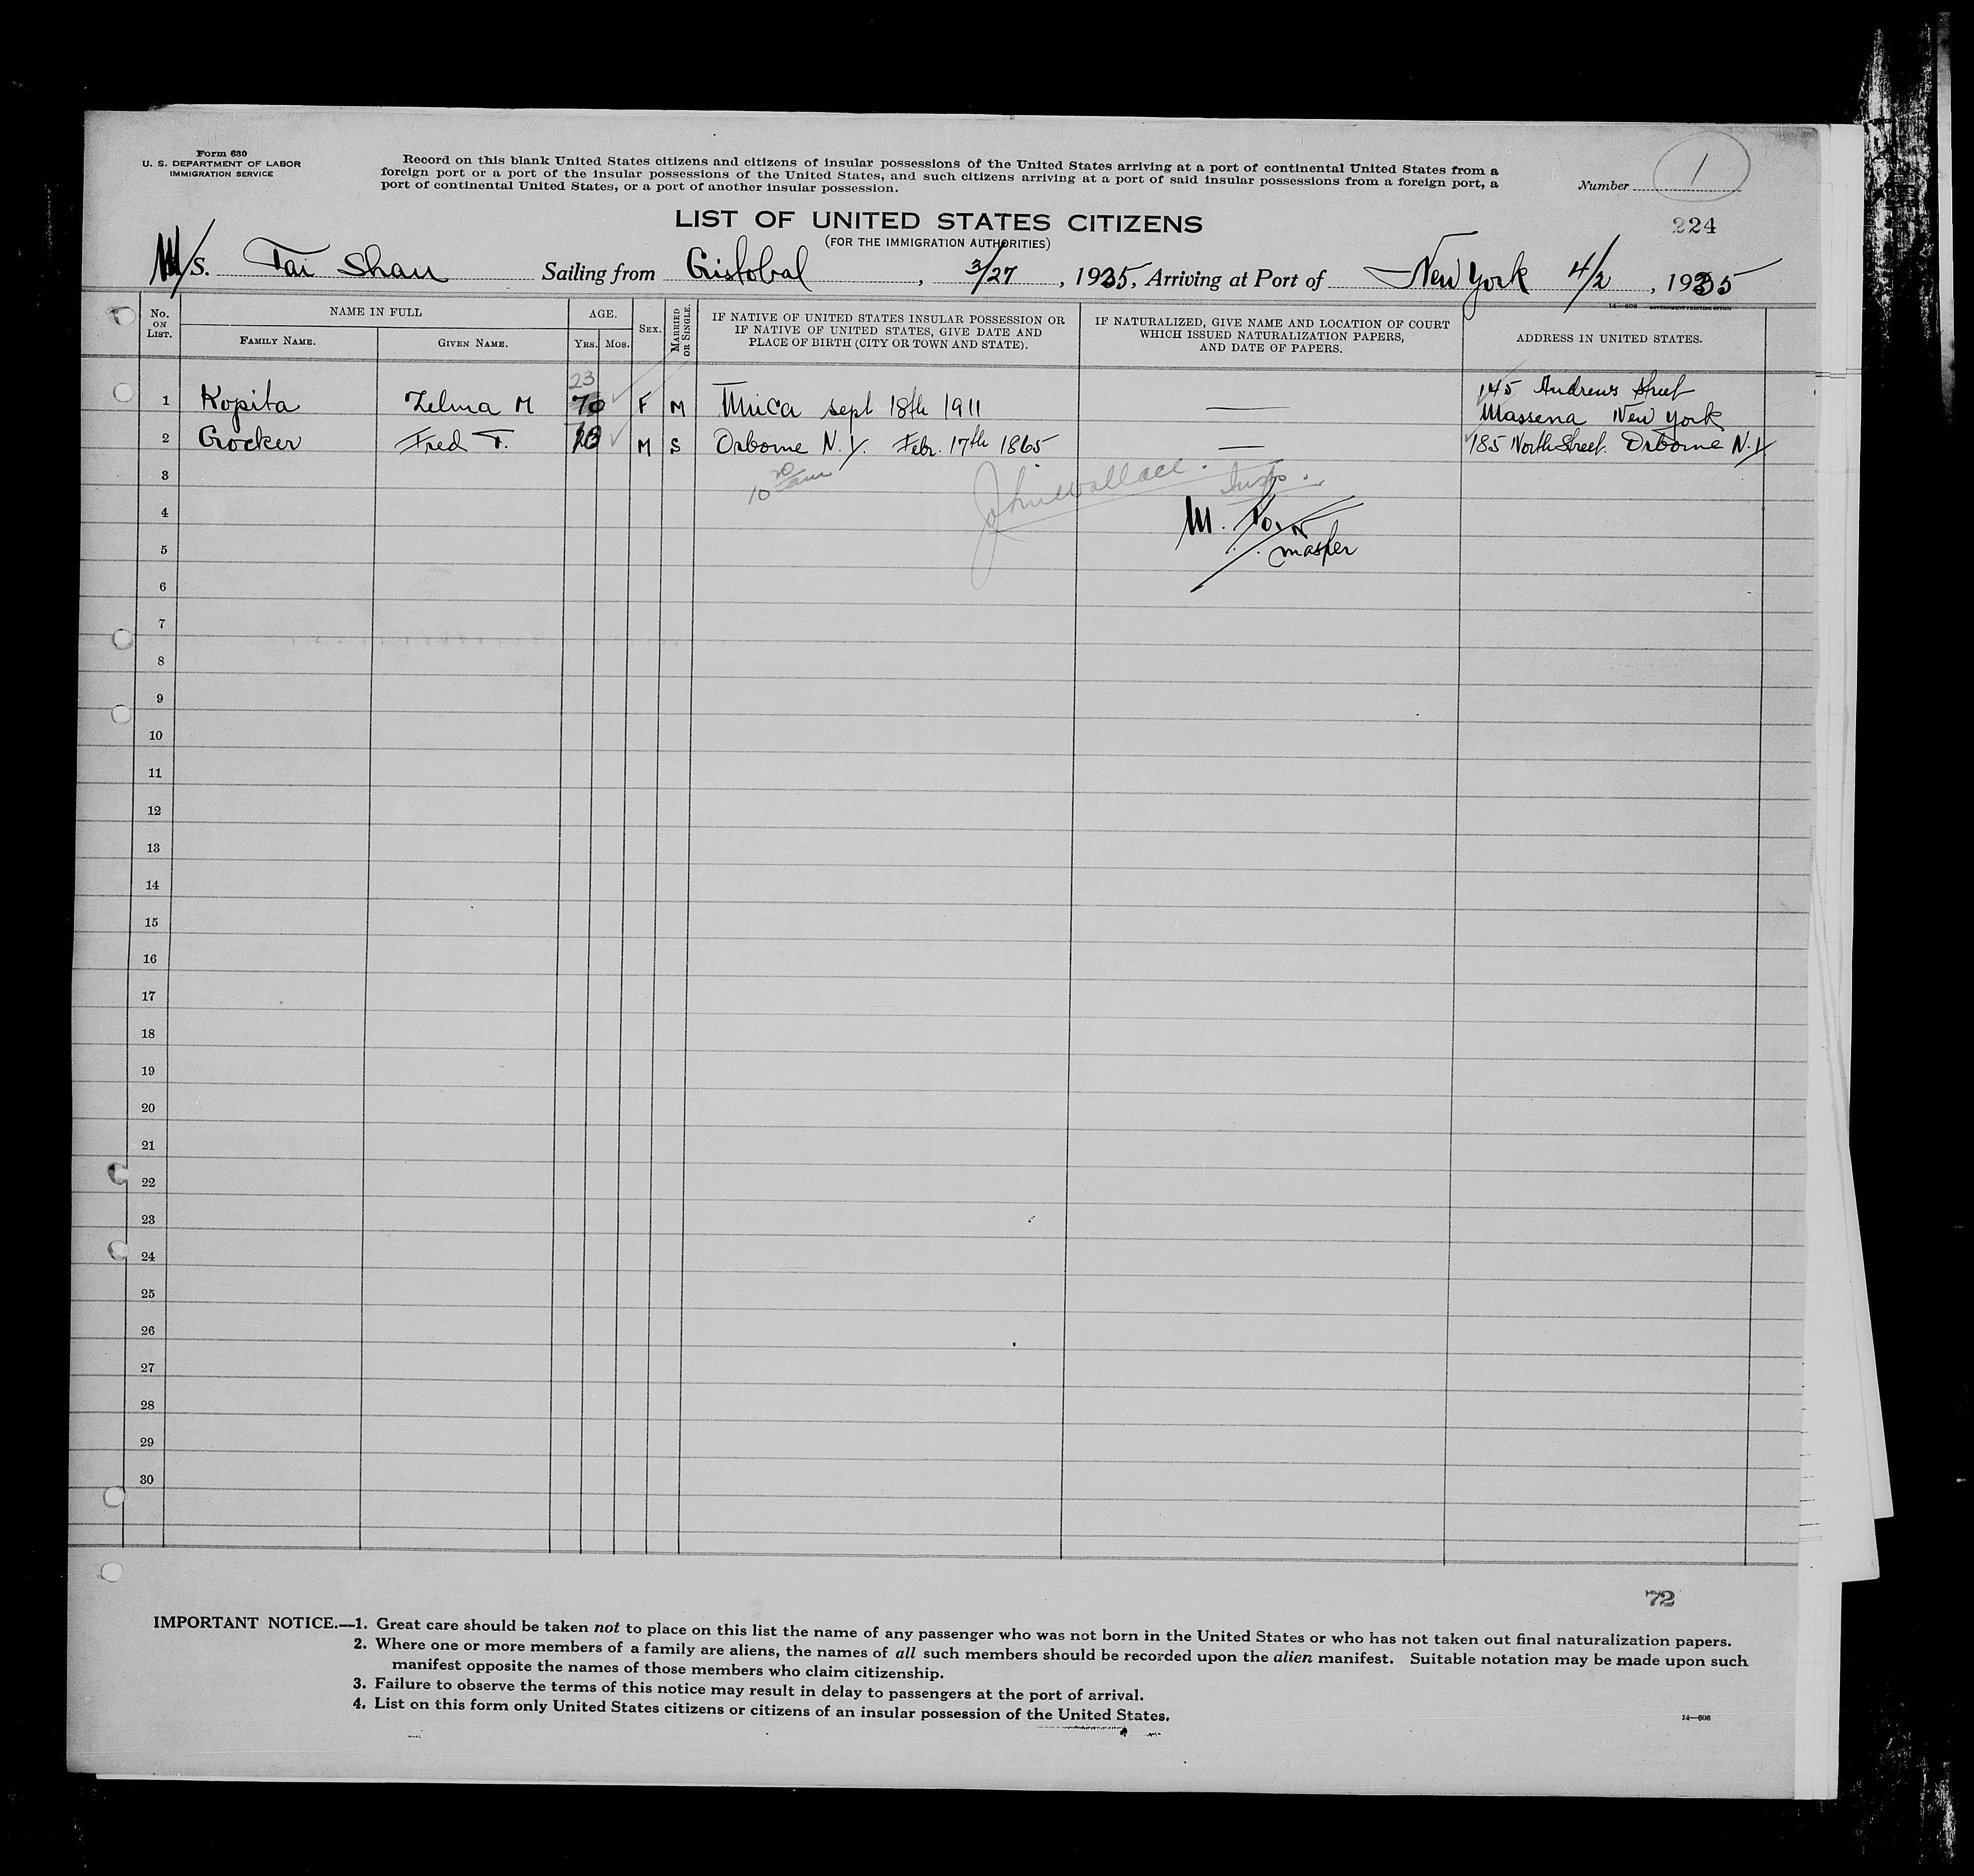 Form 630
U. S. DEPARTMENT OF LABOR
IMMIGRATION SERVICE
Record on this blank United States citizens and citizens of insular possessions of the United States arriving at a port of continental United States from a
foreign port or a port of the insular possessions of the United States, and such citizens arriving at a port of said insular possessions from a foreign port, a
port of continental United States, or a port of another insular possession.
Number 1
224
LIST OF UNITED STATES CITIZENS
(FOR THE IMMIGRATION AUTHORITIES)
M/S. Tai Shan Sailing from Cristobal, 3/27, 1935, Arriving at Port of New York 4/2, 1935
14—608 GOVERNMENT PRINTING OFFICE
No. ON LIST.
NAME IN FULL
FAMILY NAME.
GIVEN NAME.
AGE.
YRS.
MOS.
SEX.
MARRIED OR SINGLE.
IF NATIVE OF UNITED STATES INSULAR POSSESSION OR
IF NATIVE OF UNITED STATES, GIVE DATE AND
PLACE OF BIRTH (CITY OR TOWN AND STATE).
IF NATURALIZED, GIVE NAME AND LOCATION OF COURT
WHICH ISSUED NATURALIZATION PAPERS,
AND DATE OF PAPERS.
ADDRESS IN UNITED STATES.
23
145 Andrews Street
1 Kopita Zelma M F M sept 18th 1911 — Massena New York
2 Crocker Fred T. M S Osborne N.Y. Febr. 17th 1865 — 185 North Street. Osborne N.Y
3 John Wallace. Insp.
4 M.
5 master
6
7
8
9
10
11
12
13
14
15
16
17
18
19
20
21
22
23
24
25
26
27
28
29
30
72
IMPORTANT NOTICE.—1. Great care should be taken not to place on this list the name of any passenger who was not born in the United States or who has not taken out final naturalization papers.
2. Where one or more members of a family are aliens, the names of all such members should be recorded upon the alien manifest. Suitable notation may be made upon such
manifest opposite the names of those members who claim citizenship.
3. Failure to observe the terms of this notice may result in delay to passengers at the port of arrival.
4. List on this form only United States citizens or citizens of an insular possession of the United States.
14—608